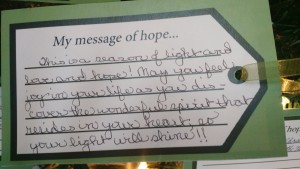 My message of hope...
This is a season of light and
love and hope! May you feel
joy in your life as you dis-
cover the wonderful spirit that
resides in your heart, so
your light will shine!!